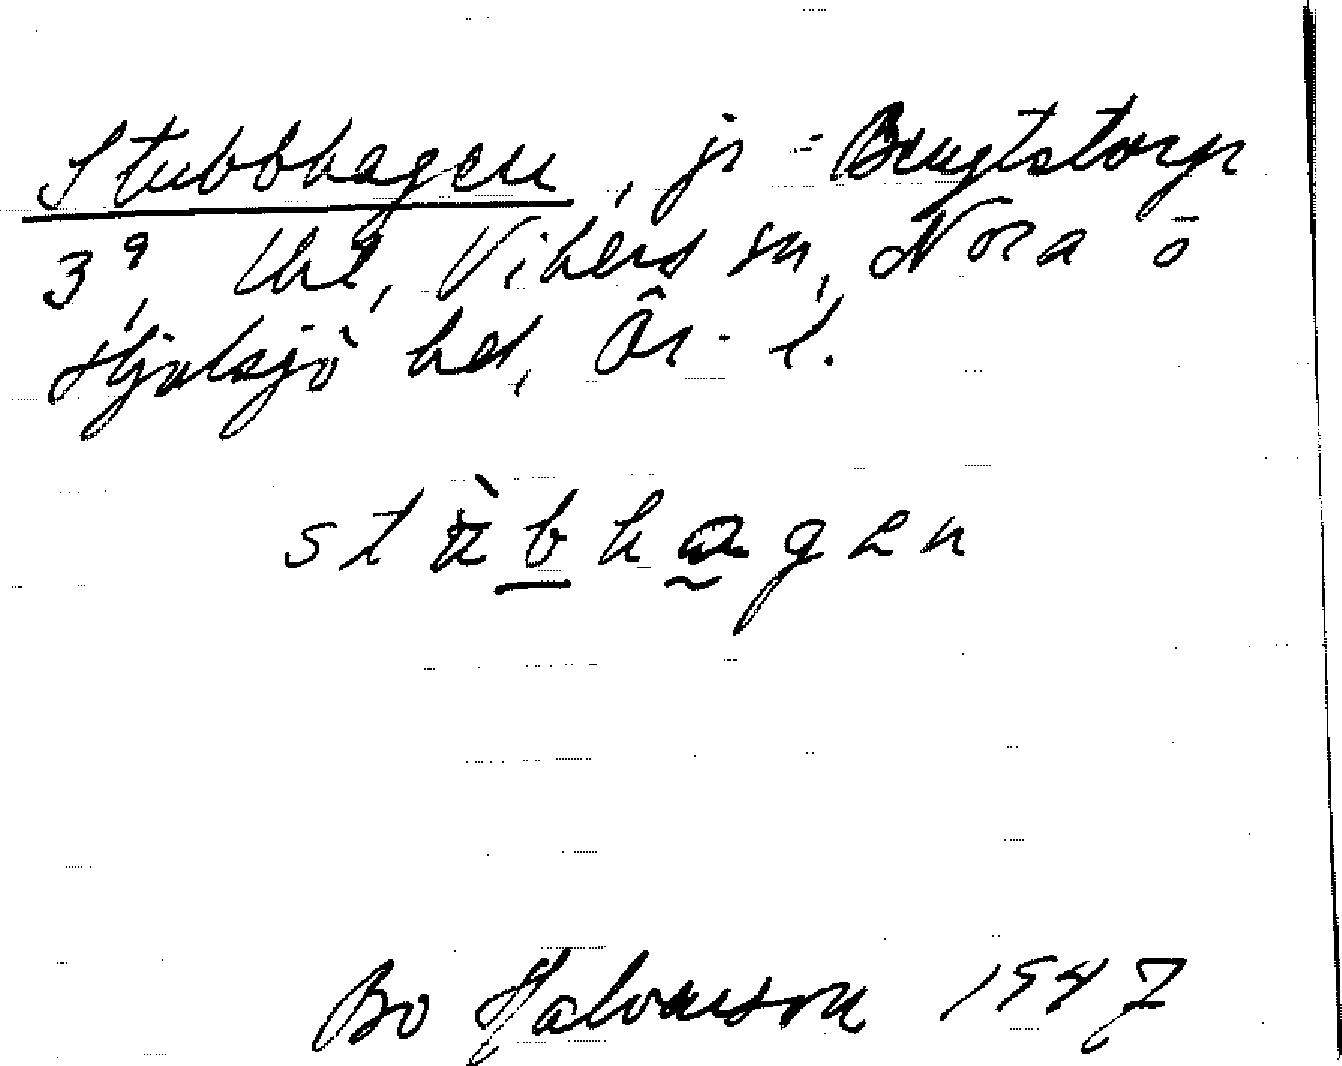 Stubbhagen, jr - Bengtstorp
3⁹, Vikers sn, Nora o
Hjulsjö bd, Ör. l.
stùbhagen
Bo Halvarson 1947